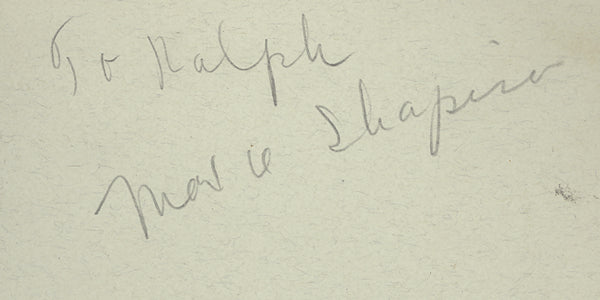 To Ralph
Marie Shapiro